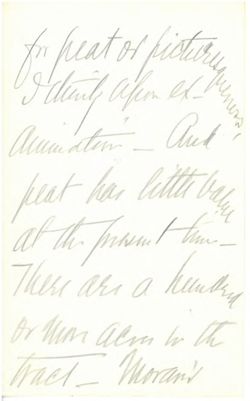 for peat or picturesqueness,
I
upon ex-
amination — And
peat has little value
at the present time —
There are a hundred
or more acres in the
tract — Moran's